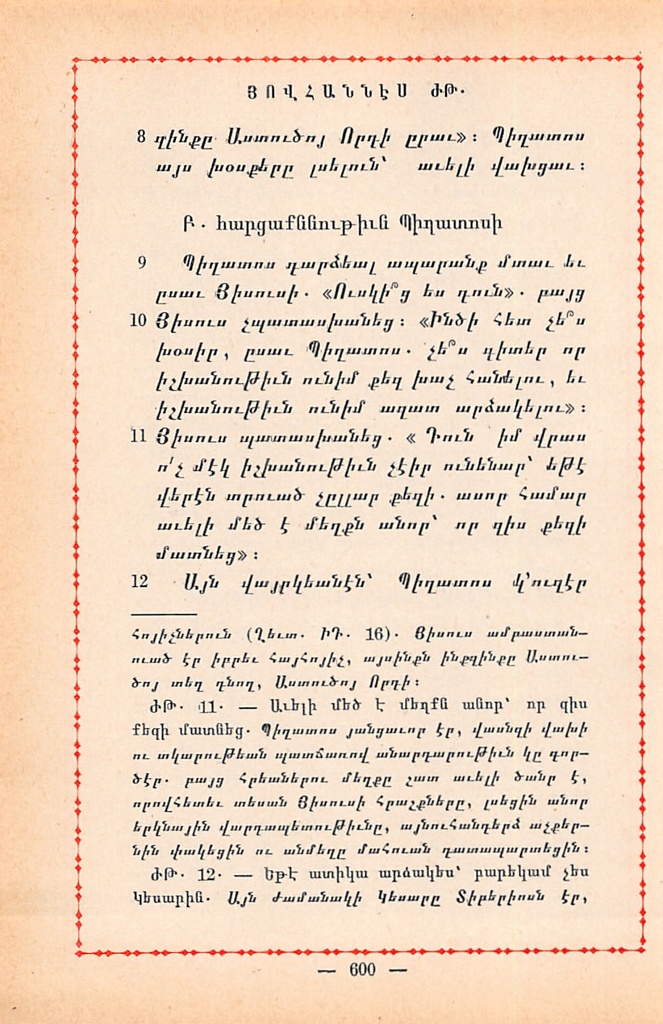 ՅՈՎՀԱՆՆԷՍ ԺԹ.
8 զինքը Աստուծոյ Որդի ըրաւ»։ Պիղատոս
այս խօսքերը լսելուն՝ աւելի վախցաւ։
Բ. հարցաքննութիւն Պիղատոսի
9 Պիղատոս դարձեալ ապարանք մտաւ եւ
ըսաւ Յիսուսի. «Ուսկի՞ց ես դուն». բայց
10 Յիսուս չպատասխանեց։ «Ինծի հետ չե՞ս
խօսիր, ըսաւ Պիղատոս. չե՞ս գիտեր որ
իշխանութիւն ունիմ քեզ խաչ հանելու, եւ
իշխանութիւն ունիմ ազատ արձակելու»։
11 Յիսուս պատասխանեց. «Դուն իմ վրաս
ո՛չ մէկ իշխանութիւն չէիր ունենար՝ եթէ
վերէն տրուած չըլլար քեզի. ասոր համար
աւելի մեծ է մեղքն անոր՝ որ զիս քեզի
մատնեց»։
12 Այն վայրկեանէն՝ Պիղատոս կ՚ուզէր
հոյիչներուն (Ղեւտ. ԻԴ. 16). Յիսուս ամբաստան–
ուած էր իբրեւ հայհոյիչ, այսինքն ինքզինքը Աստու–
ծոյ տեղ դնող, Աստուծոյ Որդի։
ԺԹ. 11. — Աւելի մեծ է մեղքն անոր՝ որ զիս
քեզի մատնեց. Պիղատոս յանցաւոր էր, վասնզի վախի
ու տկարութեան պատճառով անարդարութիւն կը գոր–
ծէր. բայց Հրեաներու մեղքը շատ աւելի ծանր է,
որովհետեւ տեսան Յիսուսի հրաշքները, լսեցին անոր
երկնային վարդապետութիւնը, այնուհանդերձ աչքեր–
նին փակեցին ու անմեղը մահուան դատապարտեցին։
ԺԹ. 12. — Եթէ ատիկա արձակես՝ բարեկամ չես
Կեսարին. Այն ժամանակի Կեսարը Տիբերիոսն էր,
— 600 —